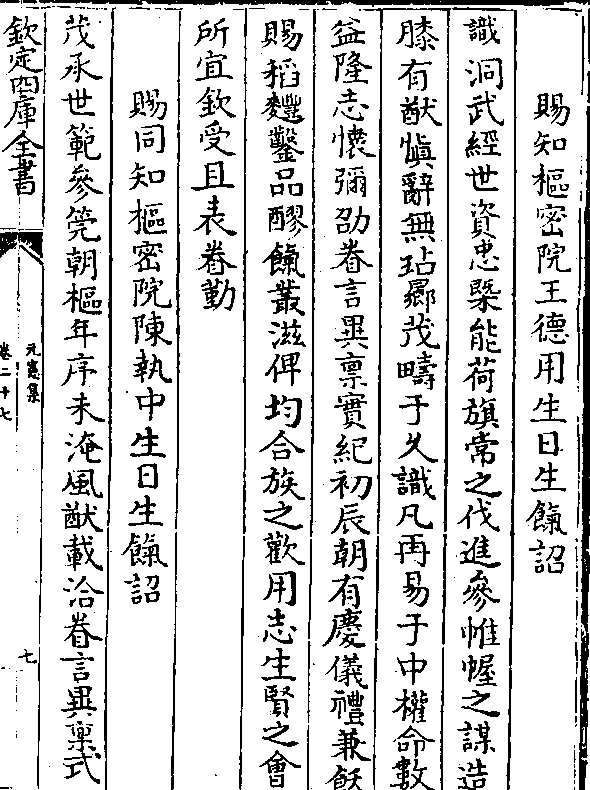 賜知樞密院王德用生日生餼詔
識洞武經世資忠槩能荷旗常之伐進參惟幄之謀造
膝有猷愼辭無玷鄭茂疇于乆識凡再易于中權命數
益隆志懷彌劭眷言異禀實紀初辰朝有慶儀禮兼飫
賜稻麷鑿品醪餼叢滋俾均合族之歡用志生賢之會
所宜欽受且表眷勤
賜同知樞密院陳執中生日生餼詔
茂承世範參筦朝樞年序未淹風猷載洽眷言異禀式
欽定四庫全書
元憲集
卷二十七
七